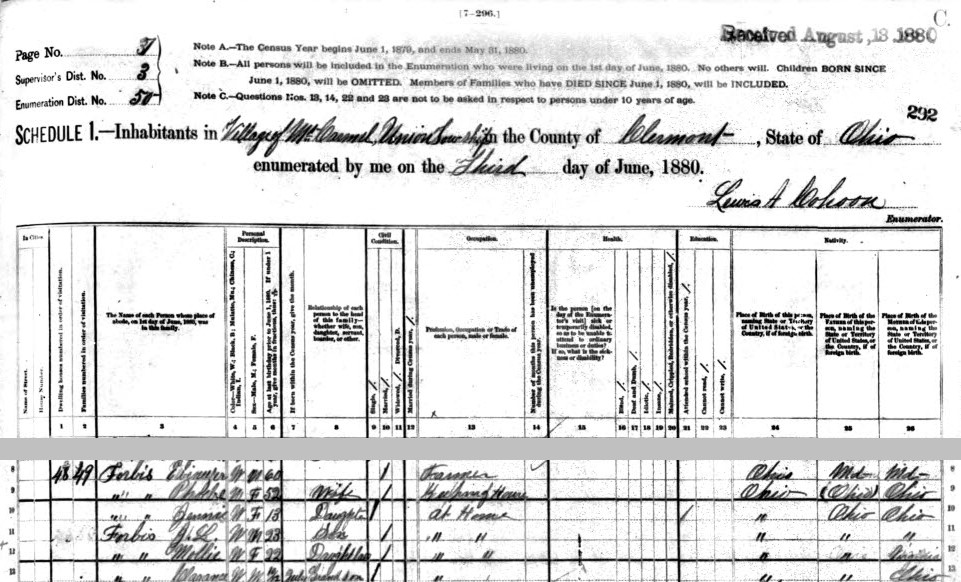 [7-296.]
C.
Received August 13 1880
Page No. 7
Supervisor's Dist. No. 3
Enumeration Dist. No. 50
Note A.—The Census Year begins June 1, 1879, and ends May 31, 1880.
Note B.—All persons will be included in the Enumeration who were living on the 1st day of June, 1880. No others will. Children BORN SINCE
June 1, 1880, will be OMITTED. Members of Families who have DIED SINCE June 1, 1880, will be INCLUDED.
Note C.—Questions Nos. 13, 14, 22 and 23 are not to be asked in respect to persons under 10 years of age.
292
SCHEDULE 1.—Inhabitants in Village of Mt Carmel, Union Township in the County of Clermont, State of Ohio
enumerated by me on the Third day of June, 1880.
Lewis A Cohoon
Enumerator.
In Cities. Personal Description. Civil Condition. Occupation. Health. Education. Nativity.
Name of Street.
House Number.
Dwelling houses numbered in order of visitation.
Families numbered in order of visitation.
The Name of each Person whose place of abode, on 1st day of June, 1880, was in this family.
Color—White, W.; Black, B.; Mulatto, Mu.; Chinese, C.; Indian, I.
Sex—Male, M.; Female, F.
Age at last birthday prior to June 1, 1880. If under 1 year, give months in fractions, thus: 3/12
If born within the Census year, give the month.
Relationship of each person to the head of this family—whether wife, son, daughter, servant, boarder, or other.
Single, /
Married, /
Widowed, / Divorced, D.
Married during Census year, /
Profession, Occupation or Trade of each person, male or female.
Number of months this person has been unemployed during the Census year.
Is the person [on the day of the Enumerator's visit] sick or temporarily disabled, so as to be unable to attend to ordinary business or duties? If so, what is the sickness or disability?
Blind, /
Deaf and Dumb, /
Idiotic, /
Insane, /
Maimed, Crippled, Bedridden, or otherwise disabled, /
Attended school within the Census year, /
Cannot read, /
Cannot write, /
Place of Birth of this person, naming State or Territory of United States, or the Country, if of foreign birth.
Place of Birth of the Father of this person, naming the State or Territory of United States, or the Country, if of foreign birth.
Place of Birth of the Mother of this person, naming the State or Territory of United States, or the Country, if of foreign birth.
1 2 3 4 5 6 7 8 9 10 11 12 13 14 15 16 17 18 19 20 21 22 23 24 25 26
8 48 49 Forbis Ebenezer W M 60 / Farmer Ohio Md Md 8
9 " " Phebe W F 52 Wife / Keeping House Ohio (Ohio) Ohio 9
10 " " W F 13 Daughter / At Home / " Ohio Ohio 10
11 Forbis J. L. W M 23 Son / " " " " " 11
12 " " Mollie W F 22 / " " " " Virginia 12
13 " " Clarance W M July Grand son " " " Ohio 13